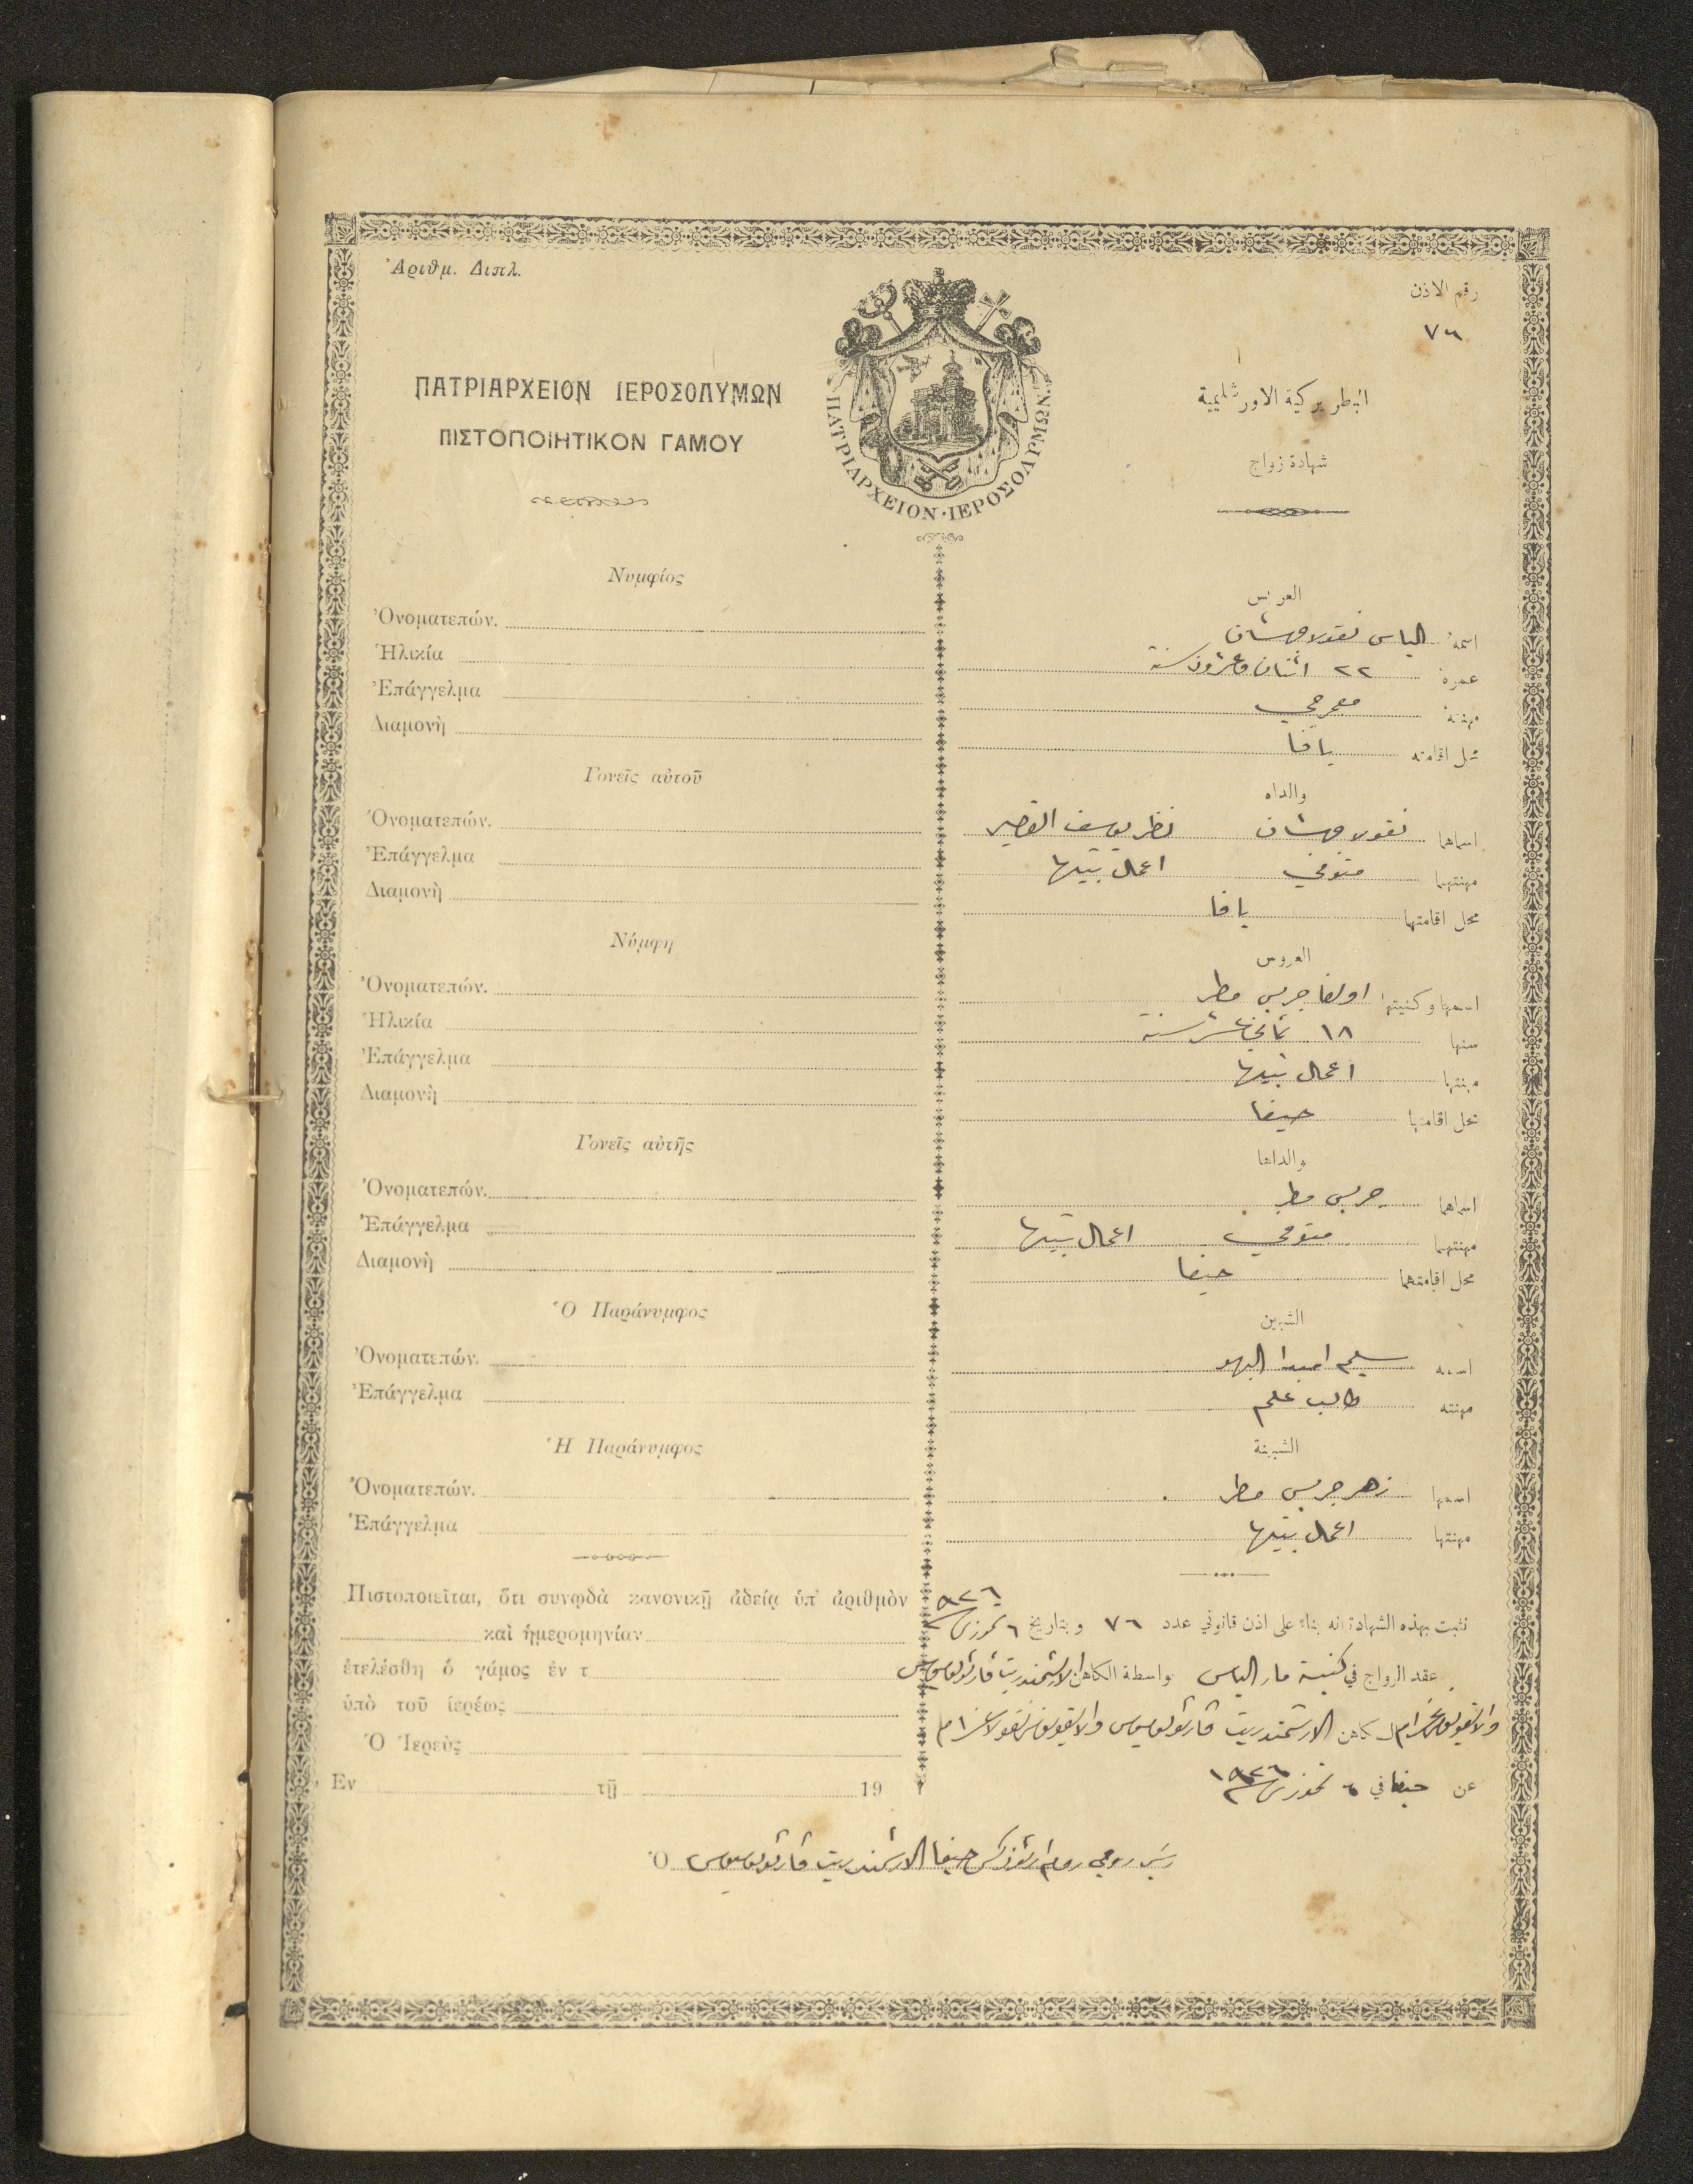 Ἀριθμ. Διπλ.
رقم الاذن
٧٦
ΠΑΤΡΙΑΡΧΕΙΟΝ ΙΕΡΟΣΟΛΥΜΩΝ
ΠΙΣΤΟΠΟΙΗΤΙΚΟΝ ΓΑΜΟΥ
ΠΑΤΡΙΑΡΧΕΙΟΝ·ΙΕΡΟΣΟΛΥΜΩΝ
البطريركية الاورشليمية
شهادة زواج
Νυμφίος
Ὀνοματεπών.
Ἡλικία
Ἐπάγγελμα
Διαμονὴ
Γονεῖς αὐτοῦ
Ὀνοματεπών.
Ἐπάγγελμα
Διαμονὴ
Νύμφη
Ὀνοματεπών.
Ἡλικία
Ἐπάγγελμα
Διαμονὴ
Γονεῖς αὐτῆς
Ὀνοματεπών.
Ἐπάγγελμα
Διαμονὴ
Ὁ Παράνυμφος
Ὀνοματεπών.
Ἐπάγγελμα
Ἡ Παράνυμφος
Ὀνοματεπών.
Ἐπάγγελμα
Πιστοποιεῖται, ὅτι συνῳδὰ κανονικῇ ἀδείᾳ ὑπ' ἀριθμὸν
καὶ ἡμερομηνίαν
ἐτελέσθη ὁ γάμος ἐν τ
ὑπὸ τοῦ ἱερέως
Ὁ Ἱερεὺς
Ἐν τῇ 19
العريس
اسمه الياس نقولا
عمره ٢٢ اثنان وعشرون سنة
مهنته
محل اقامته يافا
والداه
اسماهما نقولا
مهنتهما متوفي اعمال بيتها
محل اقامتهما يافا
العروس
اسمها وكنيتها اولغا جريس مطر
سنها ١٨ ثمانية عشر سنة
مهنتها اعمال بيتها
محل اقامتها حيفا
والداها
اسماهما جريس مطر
مهنتهما متوفي اعمال بيتها
محل اقامتهما حيفا
الشبين
اسمه سليم
مهنته طالب علم
الشبينة
اسمها زهر جريس مطر
مهنتها اعمال بيتها
نثبت بهذه الشهادة انه بناء على اذن قانوني عدد ٧٦ وبتاريخ ٦ تموز سنة ٩٢٦
عقد الزواج في كنيسة مار الياس بواسطة الكاهن الارشمندريت
الكاهن الارشمندريت
عن حيفا في ٦ تموز سنة ١٩٢٦
Ὁ رئيس روحي روم ارثوذكس حيفا الارشمندريت